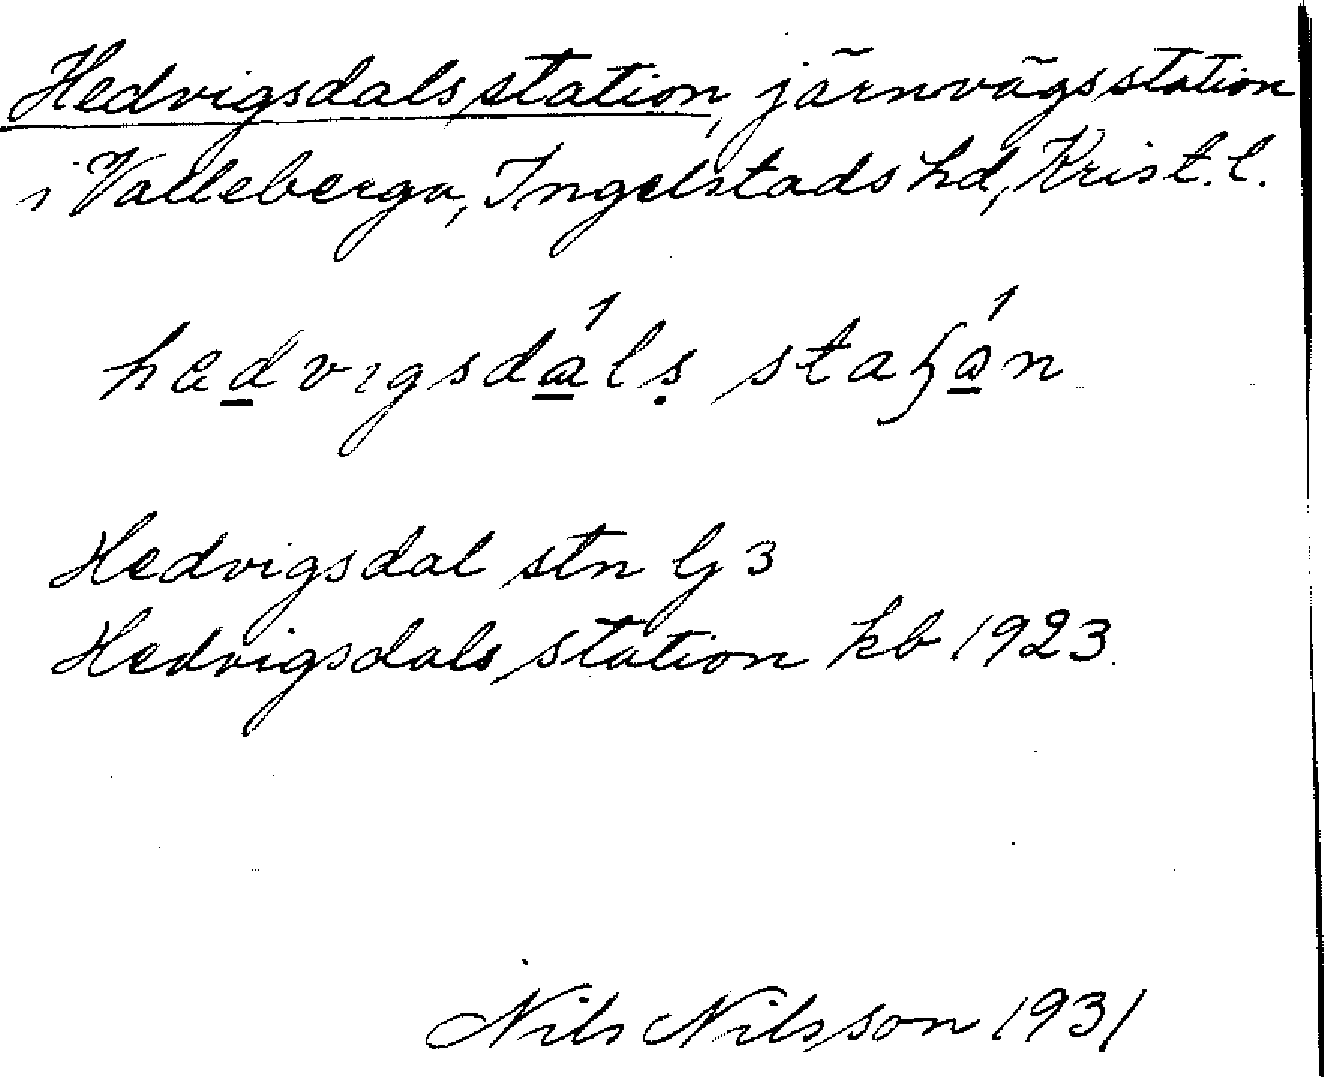 Hedvigsdals station, järnvägsstation
i Valleberga, Ingelstads hd, Krist. l.
hædvigsdáls staʃón
Hedvigsdal stn Gj 3
Hedvigsdals station kb 1923.
Nils Nilsson 1931